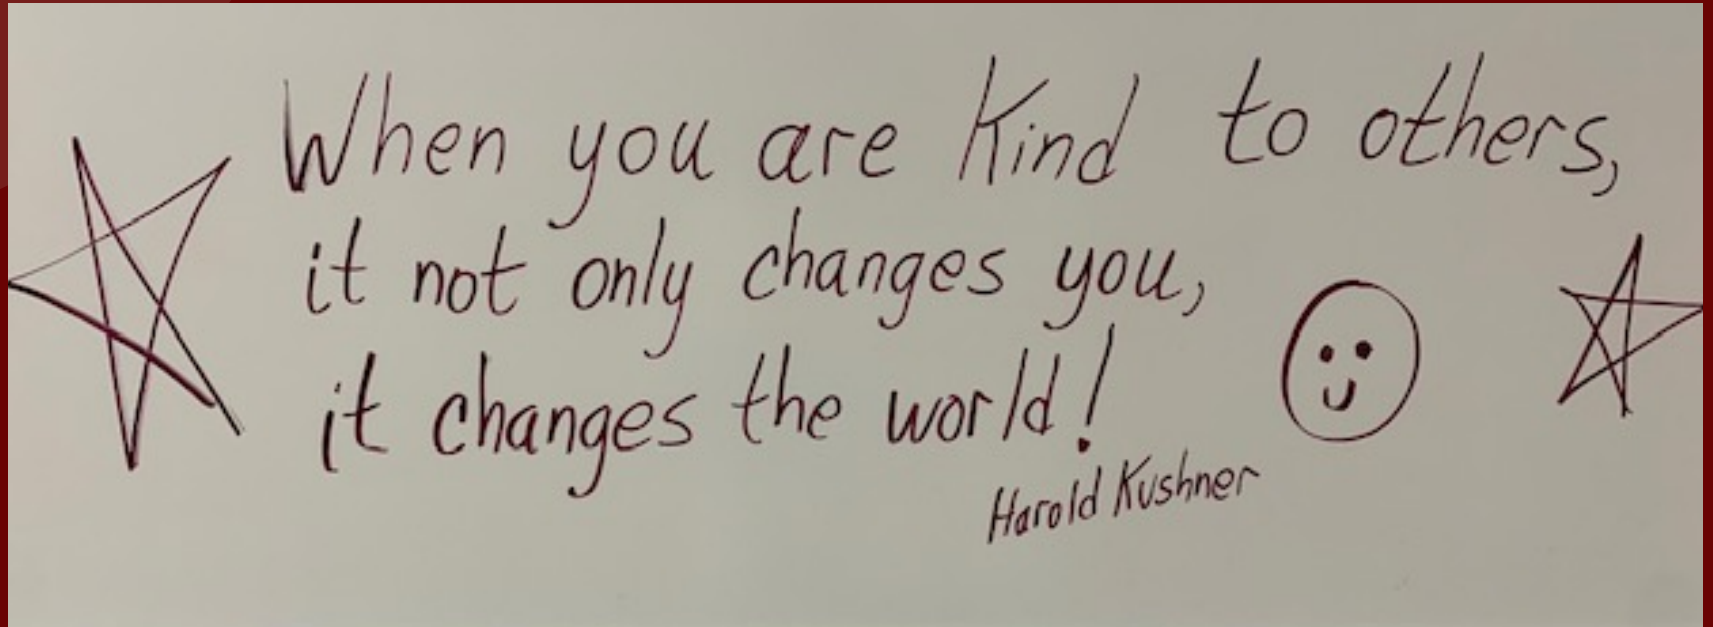 When you are Kind to others,
it not only changes you,
it changes the world!
Harold Kushner